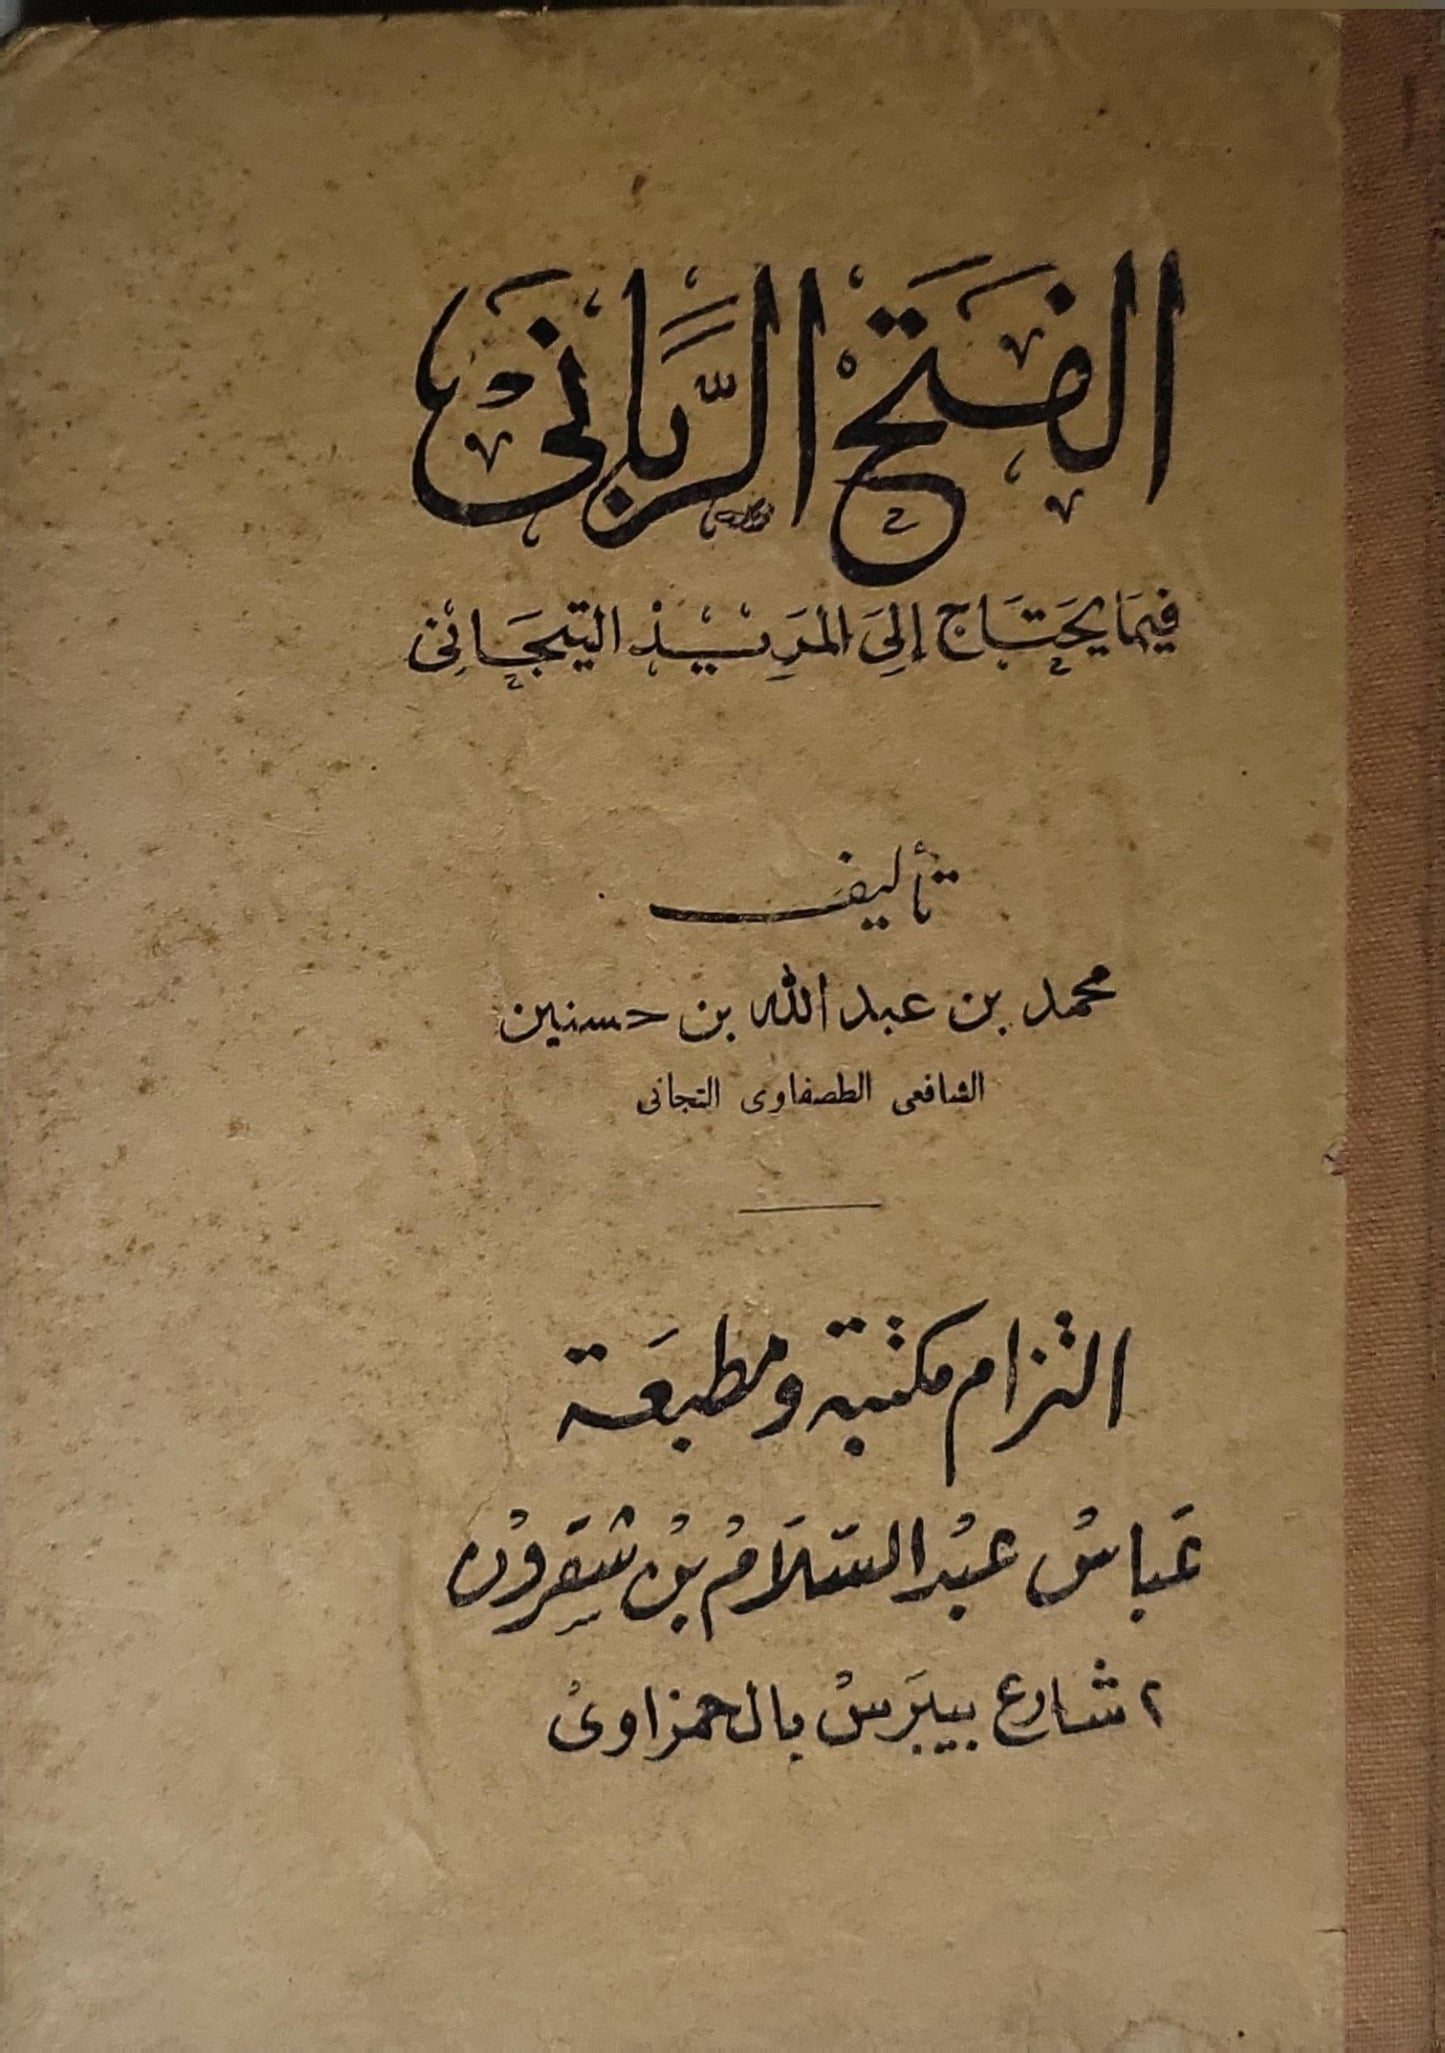 الفَتْح الرَّبَّانى
فيمَا يحَتَاج إلىَ المرَيِيْد التِجَانى
تأليف
محمد بن عبد الله بن حسنين
الشافعى الطصفاوى التجانى
التزام مكتبة ومطبعَة
عَباسْ عبْد السّلَامْ بنْ شقرونْ
٢ شارع بيبَرسْ بالحمزاوى